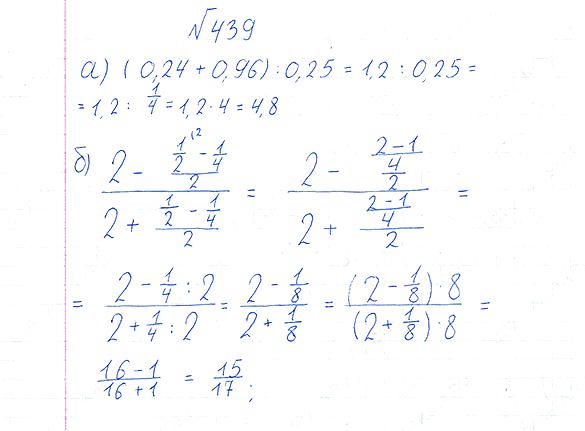 №439
а) (0,24 + 0,96) : 0,25 = 1,2 : 0,25 =
= 1,2 : 1/4 = 1,2 · 4 = 4,8
б) (2 - (1/2 - 1/4)/2)/(2 + (1/2 - 1/4)/2) = (2 - ((2-1)/4)/2)/(2 + ((2-1)/4)/2) =
= (2 - 1/4 : 2)/(2 + 1/4 : 2) = (2 - 1/8)/(2 + 1/8) = ((2 - 1/8) · 8)/((2 + 1/8) · 8) =
(16 - 1)/(16 + 1) = 15/17;